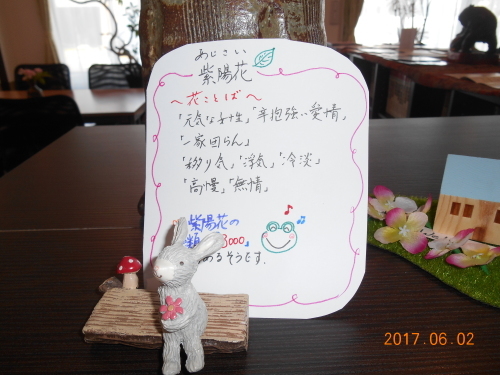 あじさい
紫陽花
～花ことば～
「元気な女性」「辛抱強い愛情」
「一家団らん」
「移り気」「浮気」「冷淡」
「高慢」「無情」
紫陽花の
3000』
あるそうです.
2017.06.02